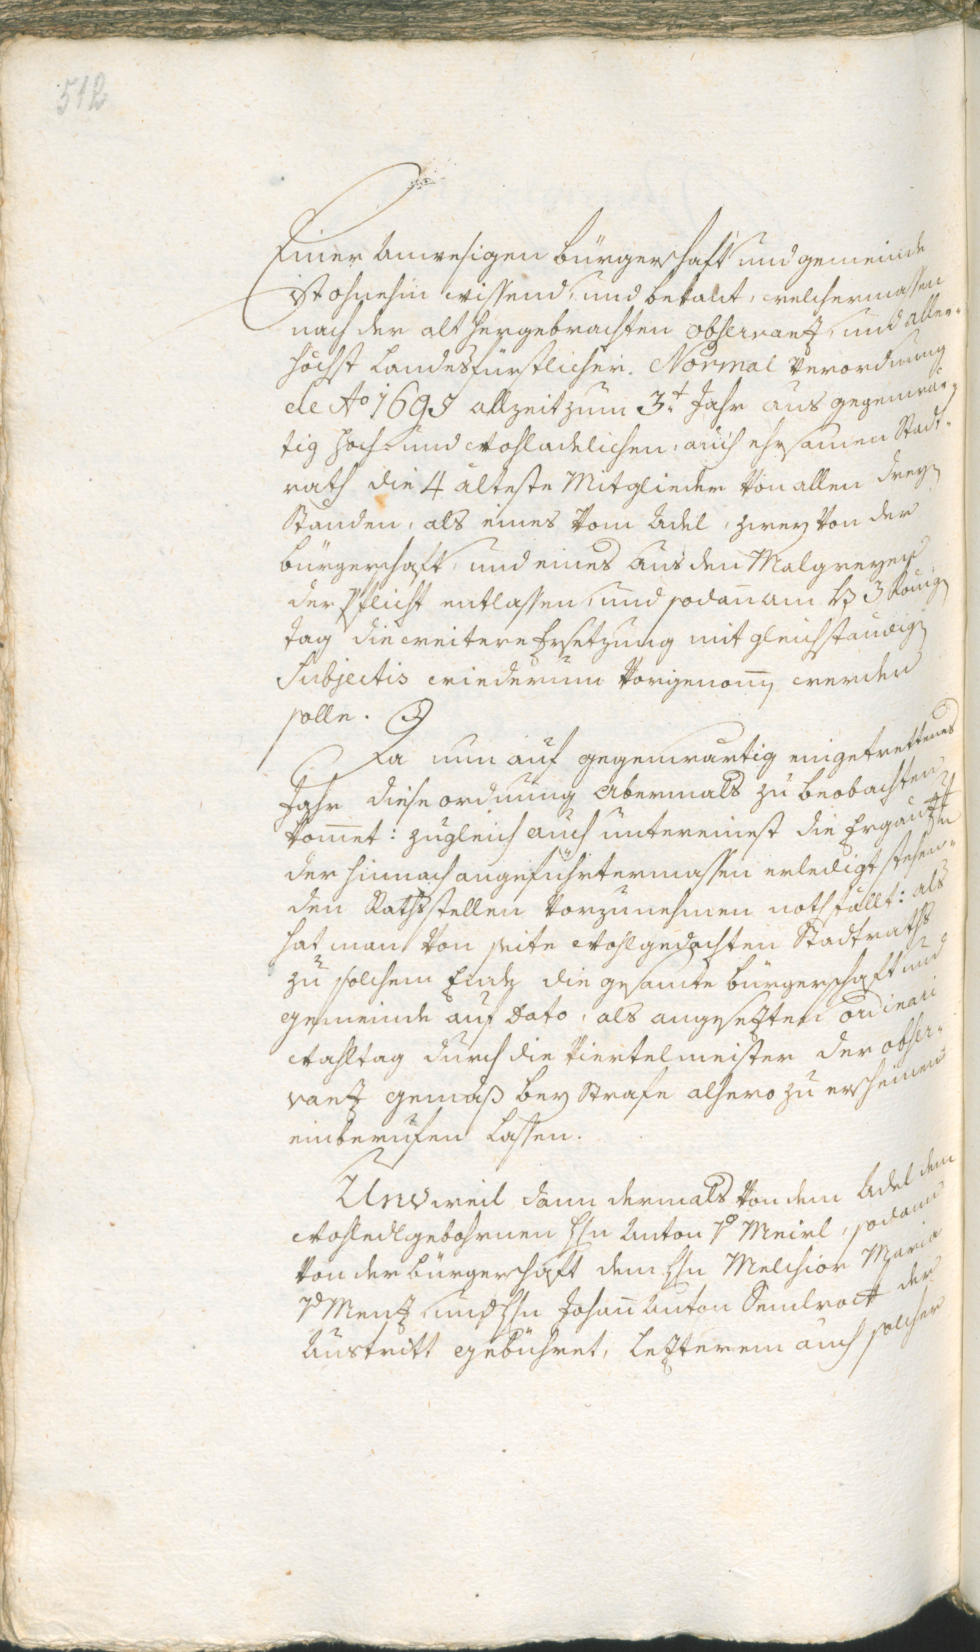 512
Einer Anwesigen bürgerschaft und gemeinde
ist ohnehin wissend, und bekant, welchermassen
nach der alt hergebrachten observantz, und aller-
höchst Landesfürstlicher. Normal verordnung
de Aō 1695 allzeit zum 3.t Jahr aus gegenwär-
tig hoch- und wohladelichen, auch ehrsamen Stadt-
rath die 4 älteste Mitglieder von allen drey
Standen, als eines vom Adel, zwey von der
bürgerschaft, und eines aus den Malgreyen
der Pflicht entlassen, und sodan̄ am H 3 König
tag die weitere Ersetzung mit gleichständig
Subjectis wiederum vorgenom̄ werden
solle.
Da nun auf gegenwärtig eingetrettenes
Jahr diese ordnung abermals zu beobachten
kom̄et: zugleich auch untereinest die Ergäntz
der hinnach angeführtermassen erledigt stehen-
den Rathsstellen vorzunehmen nothfällt: als
hat man von seite wohlgedachten Stadtraths
zu solchem Ende die gesamte bürgerschaft und
gemeinde auf Dato, als angesetzten ordinari
wahltag durch die viertelmeister der obser-
vantz gemäß bey Strafe alhero zu erscheinen
einberufen lassen.
Und weil dann dermals von dem Adel dem
wohledlgebohrnen Hn Anton v Meirl, sodann
von der bürgerschaft dem Hn Melchior Maria
v Mentz, und Hn Johan̄ Anton Sendlrock der
Austritt gebühret, Letzterem auch solcher